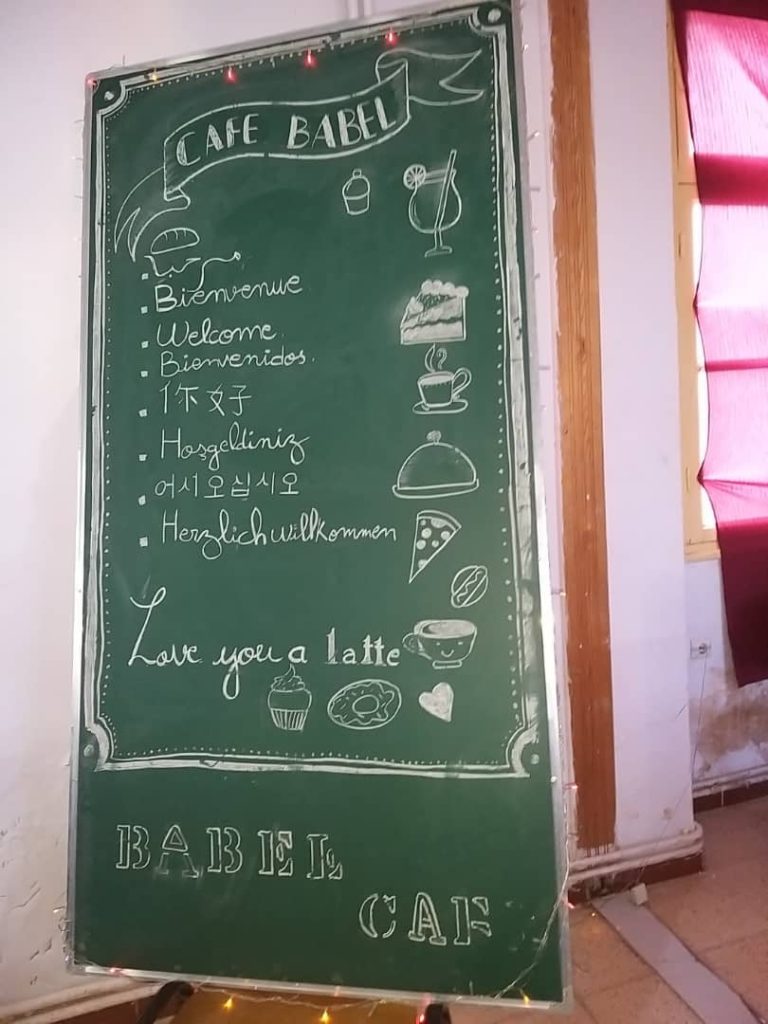 CAFE BABEL
مرحبا
Bienvenue
Welcome.
Bienvenidos.
你好
Hoşgeldiniz
어시오십시오
Herzlich willkommen
Love you a latte
BABEL
CAF